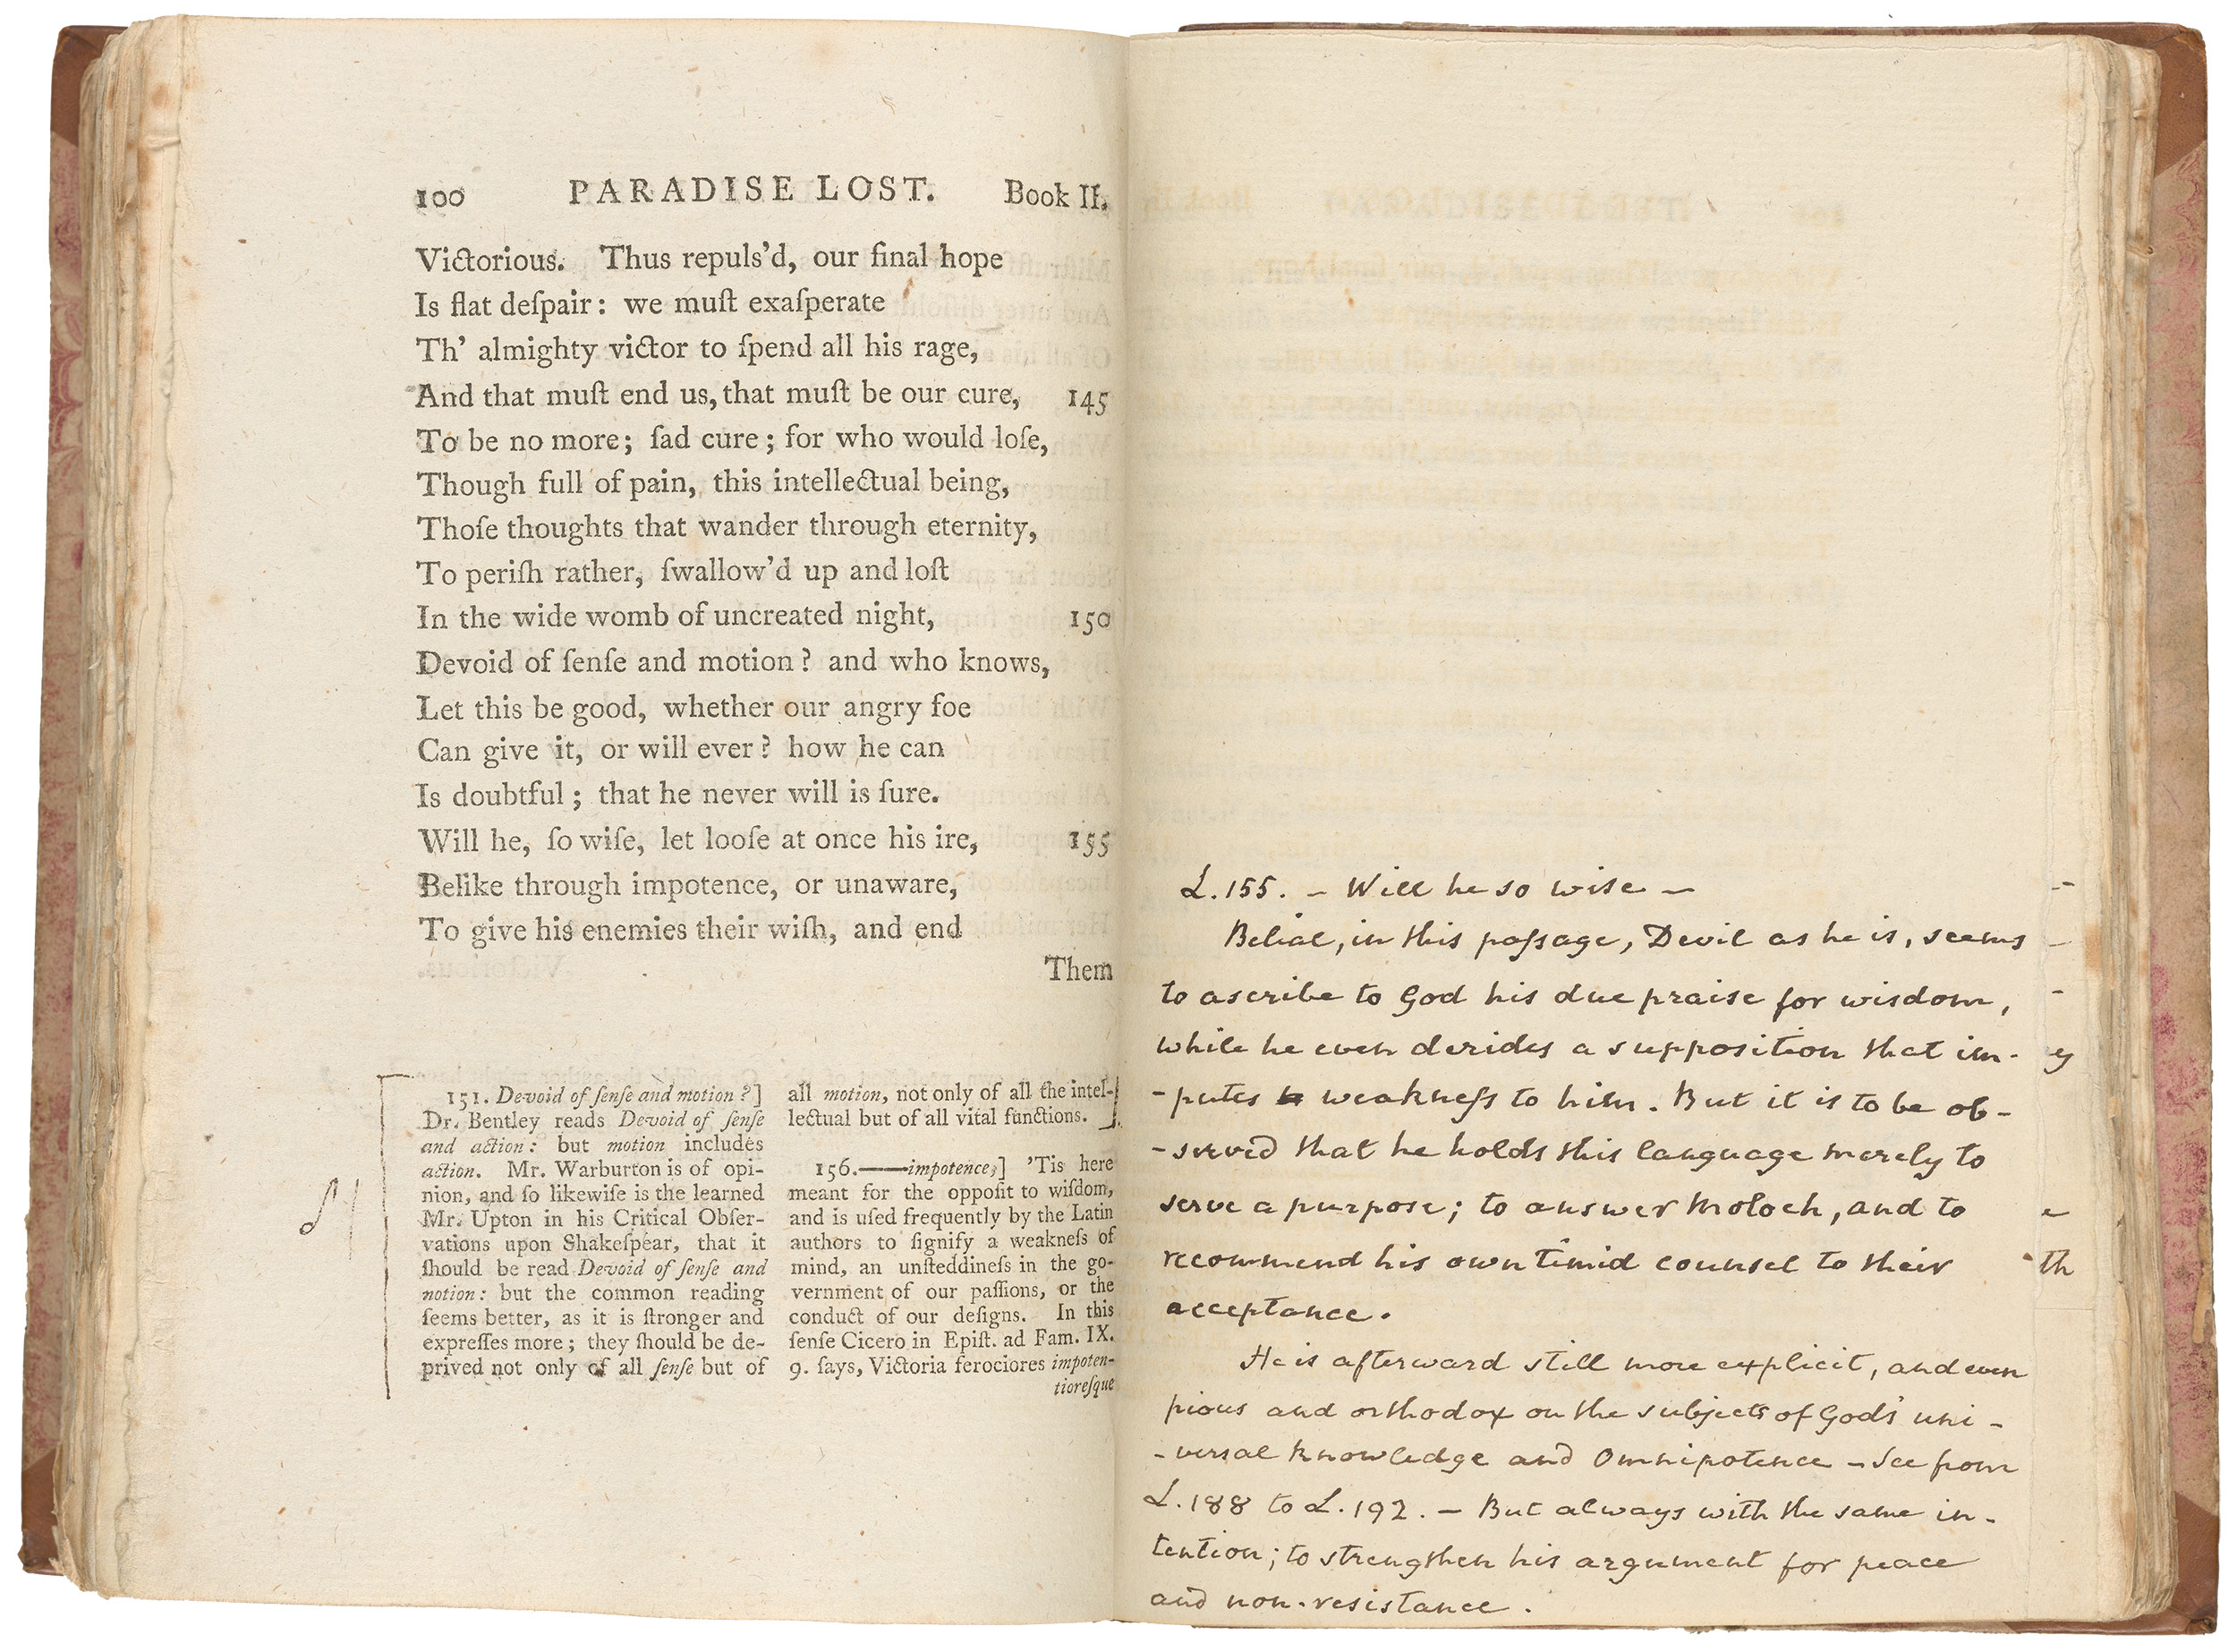 100 PARADISE LOST. Book II.
Victorious. Thus repuls'd, our final hope
Is flat deſpair: we muſt exaſperate
Th' almighty victor to ſpend all his rage,
And that muſt end us, that muſt be our cure, 145
To be no more; ſad cure; for who would loſe,
Though full of pain, this intellectual being,
Thoſe thoughts that wander through eternity,
To periſh rather, ſwallow'd up and loſt
In the wide womb of uncreated night, 150
Devoid of ſenſe and motion? and who knows,
Let this be good, whether our angry foe
Can give it, or will ever? how he can
Is doubtful; that he never will is ſure.
Will he, ſo wiſe, let looſe at once his ire, 155
Belike through impotence, or unaware,
To give his enemies their wiſh, and end
Them
151. Devoid of ſenſe and motion?]
Dr. Bentley reads Devoid of ſenſe
and action: but motion includes
action. Mr. Warburton is of opi-
nion, and ſo likewiſe is the learned
Mr. Upton in his Critical Obſer-
vations upon Shakeſpear, that it
ſhould be read Devoid of ſenſe and
notion: but the common reading
ſeems better, as it is ſtronger and
expreſſes more; they ſhould be de-
prived not only of all ſenſe but of
all motion, not only of all the intel-
lectual but of all vital functions.
156.——impotence,] 'Tis here
meant for the oppoſit to wiſdom,
and is uſed frequently by the Latin
authors to ſignify a weakneſs of
mind, an unſteddineſs in the go-
vernment of our paſſions, or the
conduct of our deſigns. In this
ſenſe Cicero in Epiſt. ad Fam. IX.
9. ſays, Victoria ferociores impoten-
tioreſque
L. 155. – Will he so wise –
Belial, in this paſsage, Devil as he is, seems
to ascribe to God his due praise for wisdom,
while he even derides a supposition that im-
-putes weakneſs to him. But it is to be ob-
-served that he holds this language merely to
serve a purpose; to answer Moloch, and to
recommend his own timid counsel to their
acceptance.
He is afterward still more explicit, and even
pious and orthodox on the subjects of Gods' uni-
-versal knowledge and Omnipotence – See from
L. 188 to L. 192. – But always with the same in-
tention; to strengthen his argument for peace
and non-resistance.
y
e
th